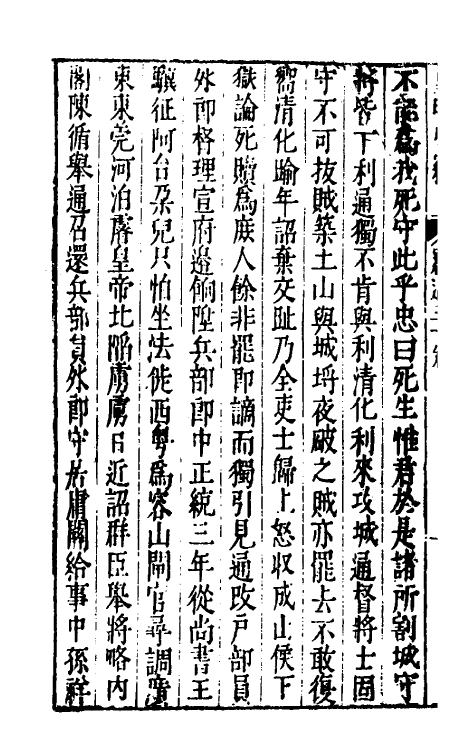 不能為我死守此乎忠曰死生惟君於是諸所割城守
將皆下利通獨不肯與利清化利來攻城通督將士固
守不可拔賊築土山與城埓夜破之賊亦罷去不敢復
嚮清化踰年詔棄交趾乃全吏士歸上怒收成山侯下
獄論死贖為庶人餘非罷即謫而獨引見通改戶部員
外郎督理宣府邊餉陞兵部郎中正統三年從尚書王
驥征阿台朶兒只怕坐法徙西粵為容山閘官尋調廣
東東莞河泊廨皇帝北陷虜虜日近詔群臣舉將略內
閣陳循舉通召還兵部員外郎守居庸關給事中孫祥